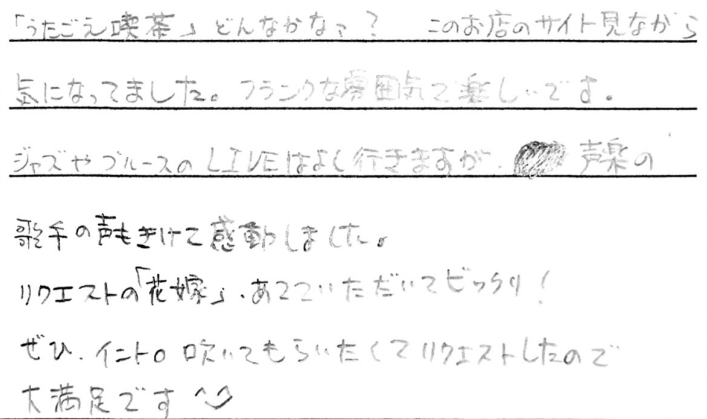 「うたごえ喫茶」どんなかなァ？ このお店のサイト見ながら
気になってました。フランクな雰囲気で楽しいです。
ジャズやブルースのLIVEはよく行きますが、声楽の
歌手の声もきけて感動しました。
リクエストの「花嫁」、あてていただいてビックリ！
ぜひ、イントロ吹いてもらいたくてリクエストしたので
大満足です